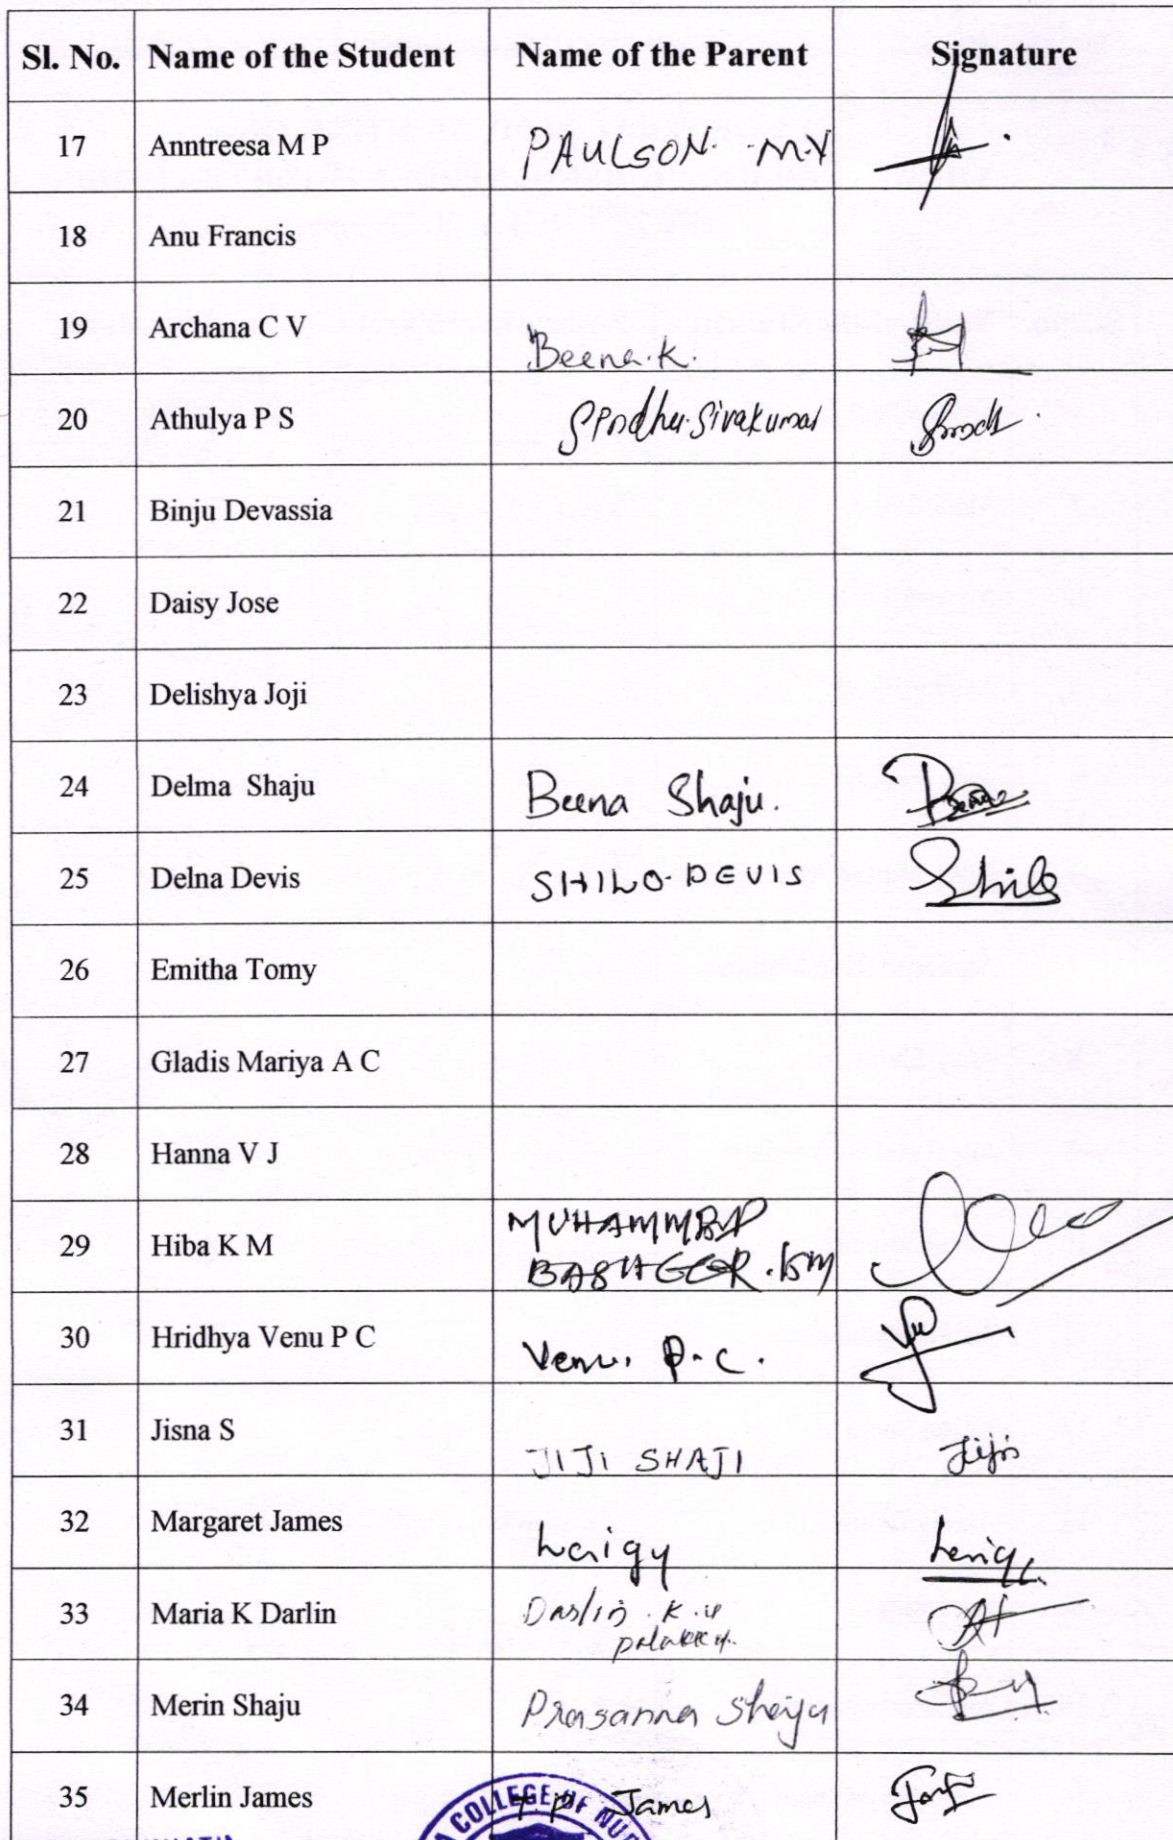 Sl. No. Name of the Student Name of the Parent Signature
17 Anntreesa M P PAULSON. M.V
18 Anu Francis
19 Archana C V Beena.K.
20 Athulya P S Sivakumar
21 Binju Devassia
22 Daisy Jose
23 Delishya Joji
24 Delma Shaju Beena Shaju. Beena
25 Delna Devis SHILO DEVIS Shilo
26 Emitha Tomy
27 Gladis Mariya A C
28 Hanna V J
29 Hiba K M MUHAMMED
BASHEER.KM
30 Hridhya Venu P C Venu. P.C.
31 Jisna S JIJI SHAJI Jiji
32 Margaret James Laigy
33 Maria K Darlin Darlin
34 Merin Shaju Prasanna Shaju
35 Merlin James James
COLLEGE OF NUR